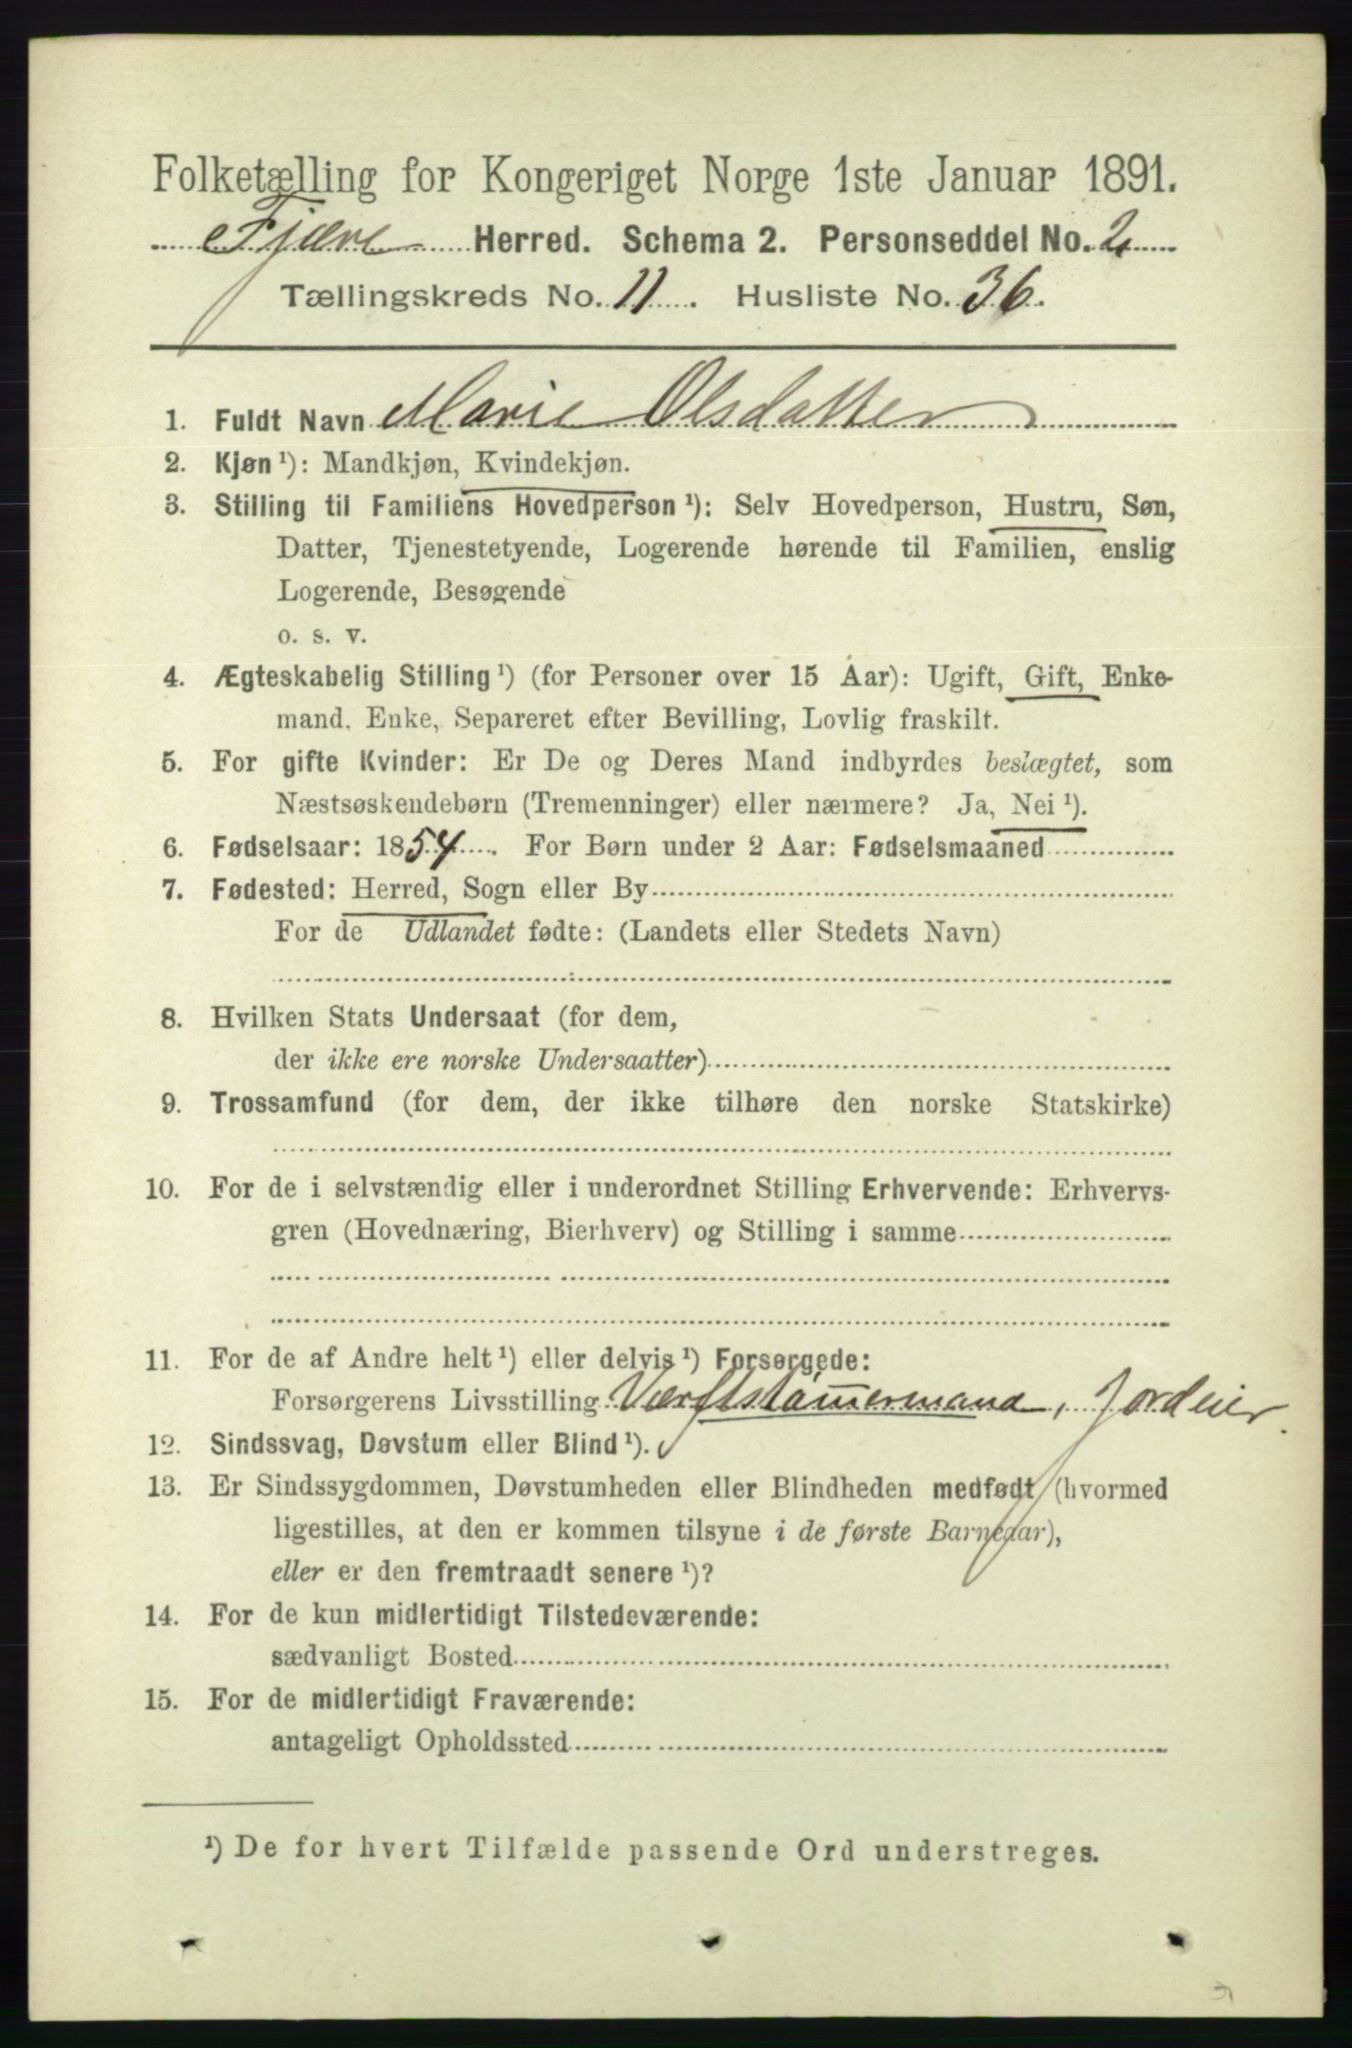 Folketælling for Kongeriget Norge 1ste Januar 1891.
Fjære Herred. Schema 2. Personseddel No. 2
Tællingskreds No. 11. Husliste No. 36.
1. Fuldt Navn Marie Olsdatter
2. Kjøn ¹): Mandkjøn, Kvindekjøn.
3. Stilling til Familiens Hovedperson ¹): Selv Hovedperson, Hustru, Søn,
Datter, Tjenestetyende, Logerende hørende til Familien, enslig
Logerende, Besøgende
o. s. v.
4. Ægteskabelig Stilling ¹) (for Personer over 15 Aar): Ugift, Gift, Enke-
mand, Enke, Separeret efter Bevilling, Lovlig fraskilt.
5. For gifte Kvinder: Er De og Deres Mand indbyrdes beslægtet, som
Næstsøskendebørn (Tremenninger) eller nærmere? Ja, Nei ¹).
6. Fødselsaar: 1854. For Børn under 2 Aar: Fødselsmaaned
7. Fødested: Herred, Sogn eller By
For de Udlandet fødte: (Landets eller Stedets Navn)
8. Hvilken Stats Undersaat (for dem,
der ikke ere norske Undersaatter)
9. Trossamfund (for dem, der ikke tilhøre den norske Statskirke)
10. For de i selvstændig eller i underordnet Stilling Erhvervende: Erhvervs-
gren (Hovednæring, Bierhverv) og Stilling i samme
11. For de af Andre helt ¹) eller delvis ¹) Forsørgede:
Forsørgerens Livsstilling Værftstømermand, Jordeier.
12. Sindssvag, Døvstum eller Blind ¹).
13. Er Sindssygdommen, Døvstumheden eller Blindheden medfødt (hvormed
ligestilles, at den er kommen tilsyne i de første Barneaar),
eller er den fremtraadt senere ¹)?
14. For de kun midlertidigt Tilstedeværende:
sædvanligt Bosted
15. For de midlertidigt Fraværende:
antageligt Opholdssted
¹) De for hvert Tilfælde passende Ord understreges.